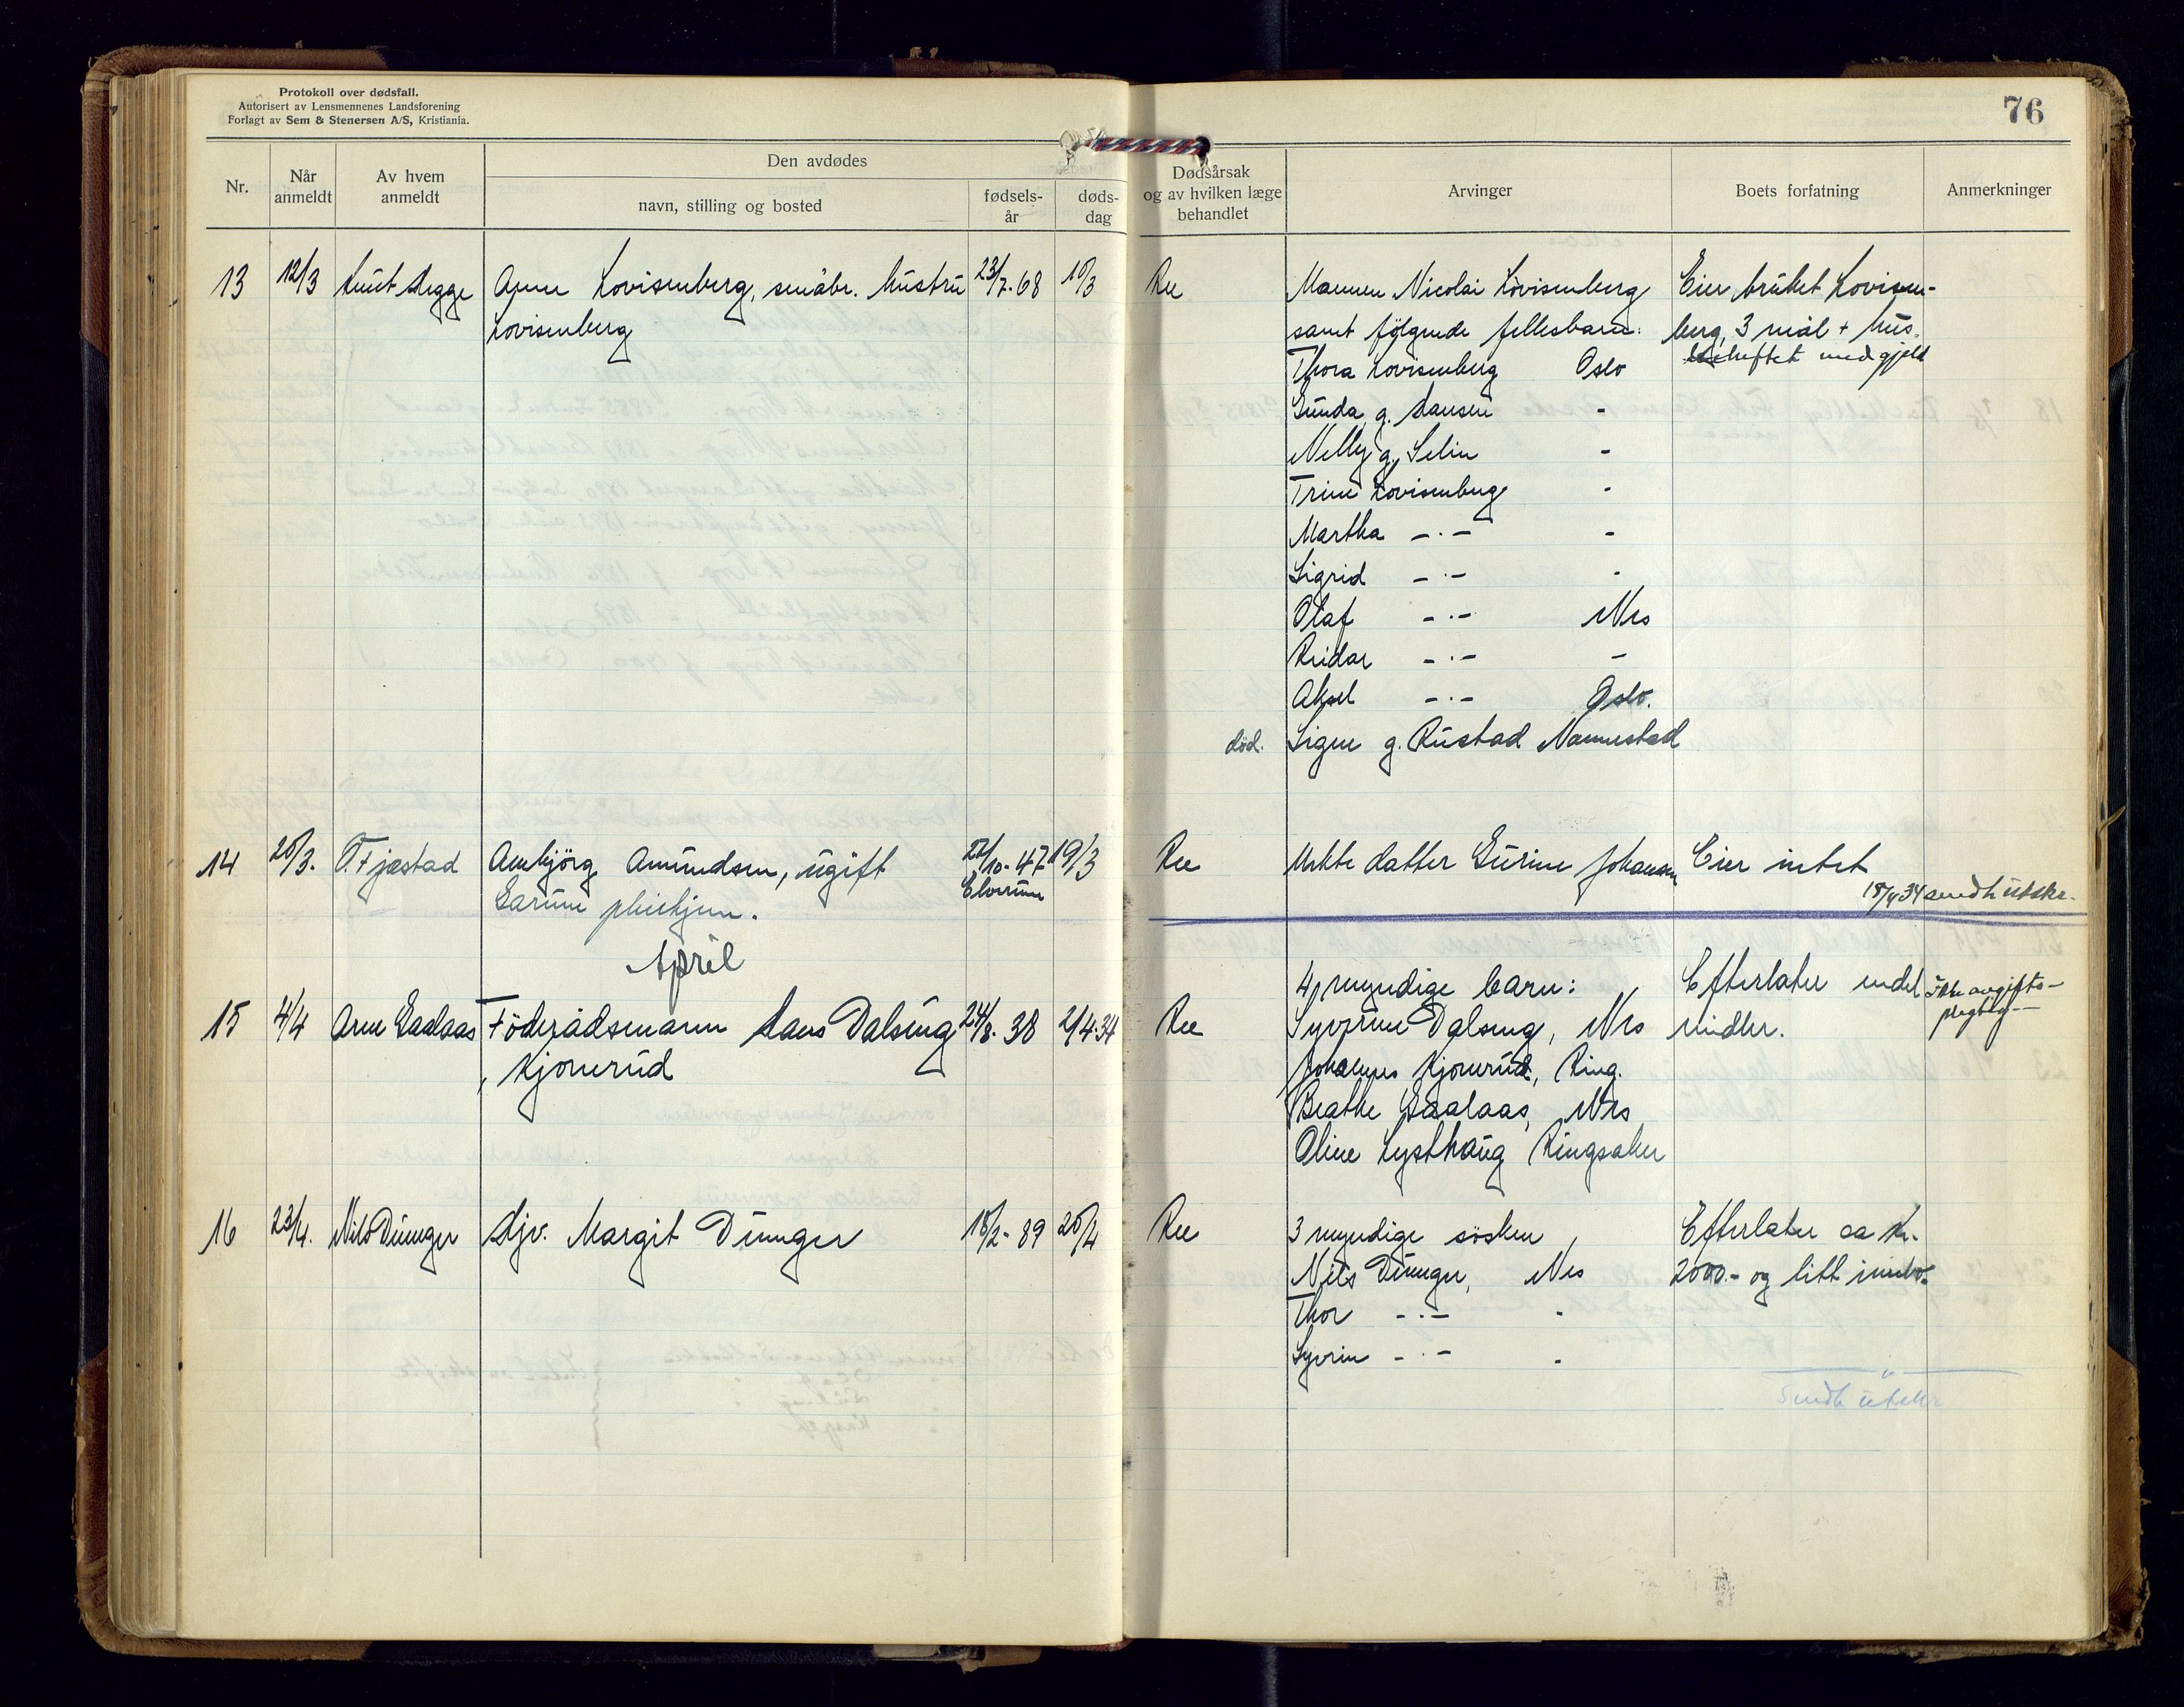 Protokoll over dødsfall.
Autorisert av Lensmennenes Landsforening
Forlagt av Sem & Stenersen A/S, Kristiania.
76
Nr.
Når anmeldt
Av hvem anmeldt
Den avdødes
navn, stilling og bosted
fødsels-år
døds-dag
Dødsårsak og av hvilken læge behandlet
Arvinger
Boets forfatning
Anmerkninger
13 12/3 Knut Hegge Anne Lovisenberg, småbr. hustru 23/7-68 10/3 Ree
Lovisenberg
Mannen Nicolai Lovisenberg
samt følgende fellesbarn:
Thora Lovisenberg Oslo
Gunda g. Hansen -
Nelly g. Selin -
Trine Lovisenberg -
Martha -·- -
Sigrid -·- -
Olaf -·- Nes
Reidar -·- -
Aksel -·- Oslo.
død. Signe g. Rustad Nannestad
Eier bruket Lovisen-
berg, 3 mål + hus.
beheftet med gjeld
14 20/3. O. Fjæstad Ambjörg Amundsen, ugift 22/10-47 19/3 Ree
Elverum
pleiehjem.
Uekte datter Gurine Johansen Eier intet
18/4 34 sendt utskr.
April
15 4/4 Arne Gaalaas Föderådsmann Hans Dalseng 24/8-38 2/4-34 Ree
, Kjonerud
4 myndige barn:
Syverine Dalseng, Nes
Johannes Kjonerud, Ring.
Beathe Gaalaas, Nes
Oline Lysthaug Ringsaker
Efterlater endel
midler.
Ikke avgifts-
pligtig
16 23/4. Nils Dünger Hjv. Margit Dünger 18/2-89 20/4 Ree
3 myndige søsken,
Nils Dünger, Nes
Thor -·- -
Syverin -·- -
Efterlater ca kr.
2000.- og litt innbo.
Sendt utskr